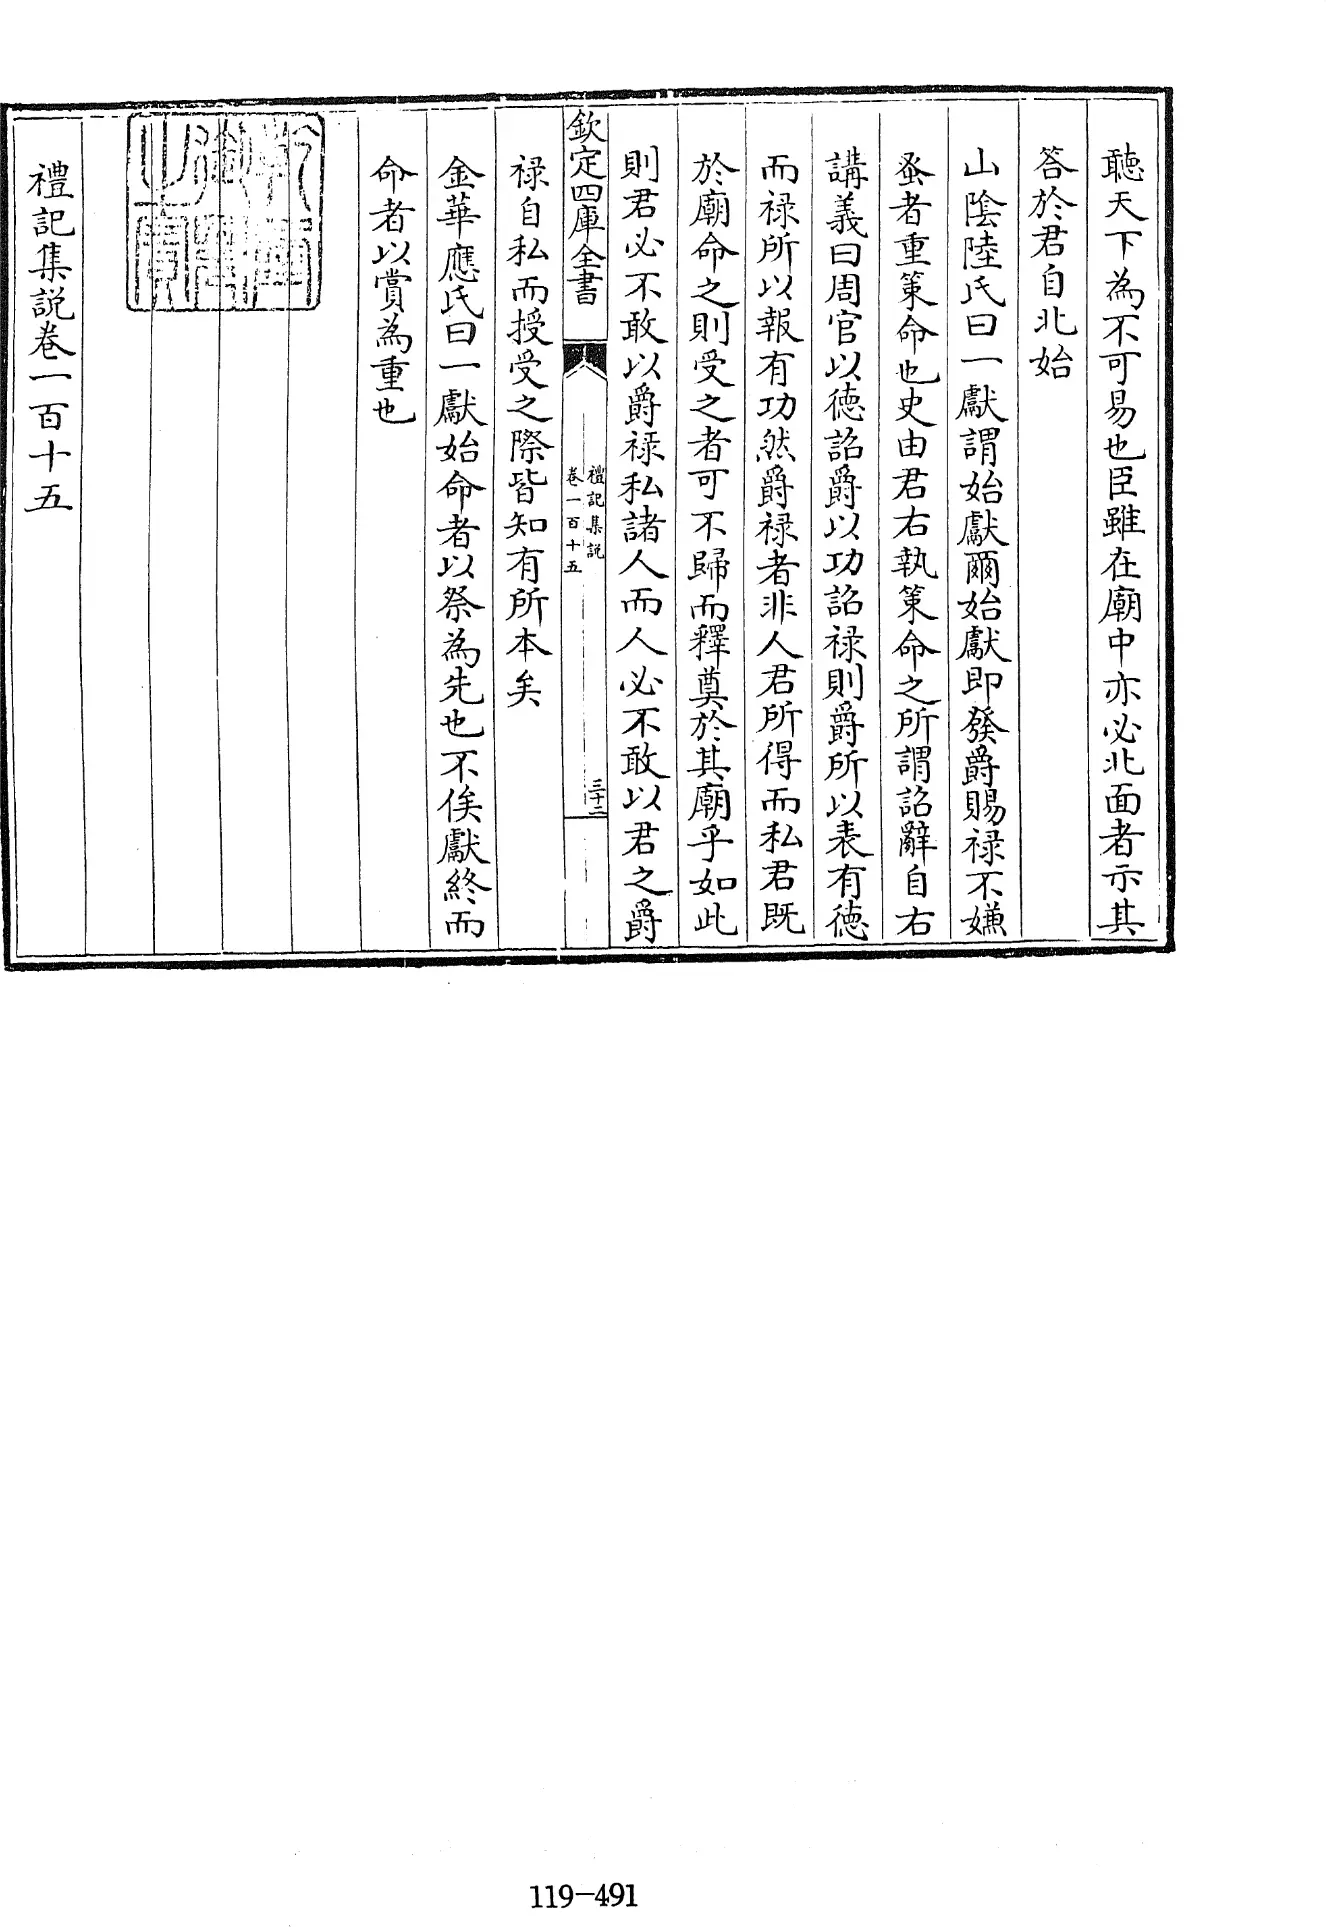 聽天下為不可易也臣雖在廟中亦必北面者示其
答於君自北始
山隂陸氏曰一獻謂始獻爾始獻即發爵賜禄不嫌
蚤者重䇿命也史由君右執䇿命之所謂詔辭自右
講義曰周官以徳詔爵以功詔禄則爵所以表有徳
而禄所以報有功然爵禄者非人君所得而私君既
於廟命之則受之者可不歸而釋奠於其廟乎如此
則君必不敢以爵禄私諸人而人必不敢以君之爵
欽定四庫全書
禮記集說
卷一百十五
三十二
禄自私而授受之際皆知有所本矣
金華應氏曰一獻始命者以祭為先也不俟獻終而
命者以賞為重也
禮記集説卷一百十五
119-491